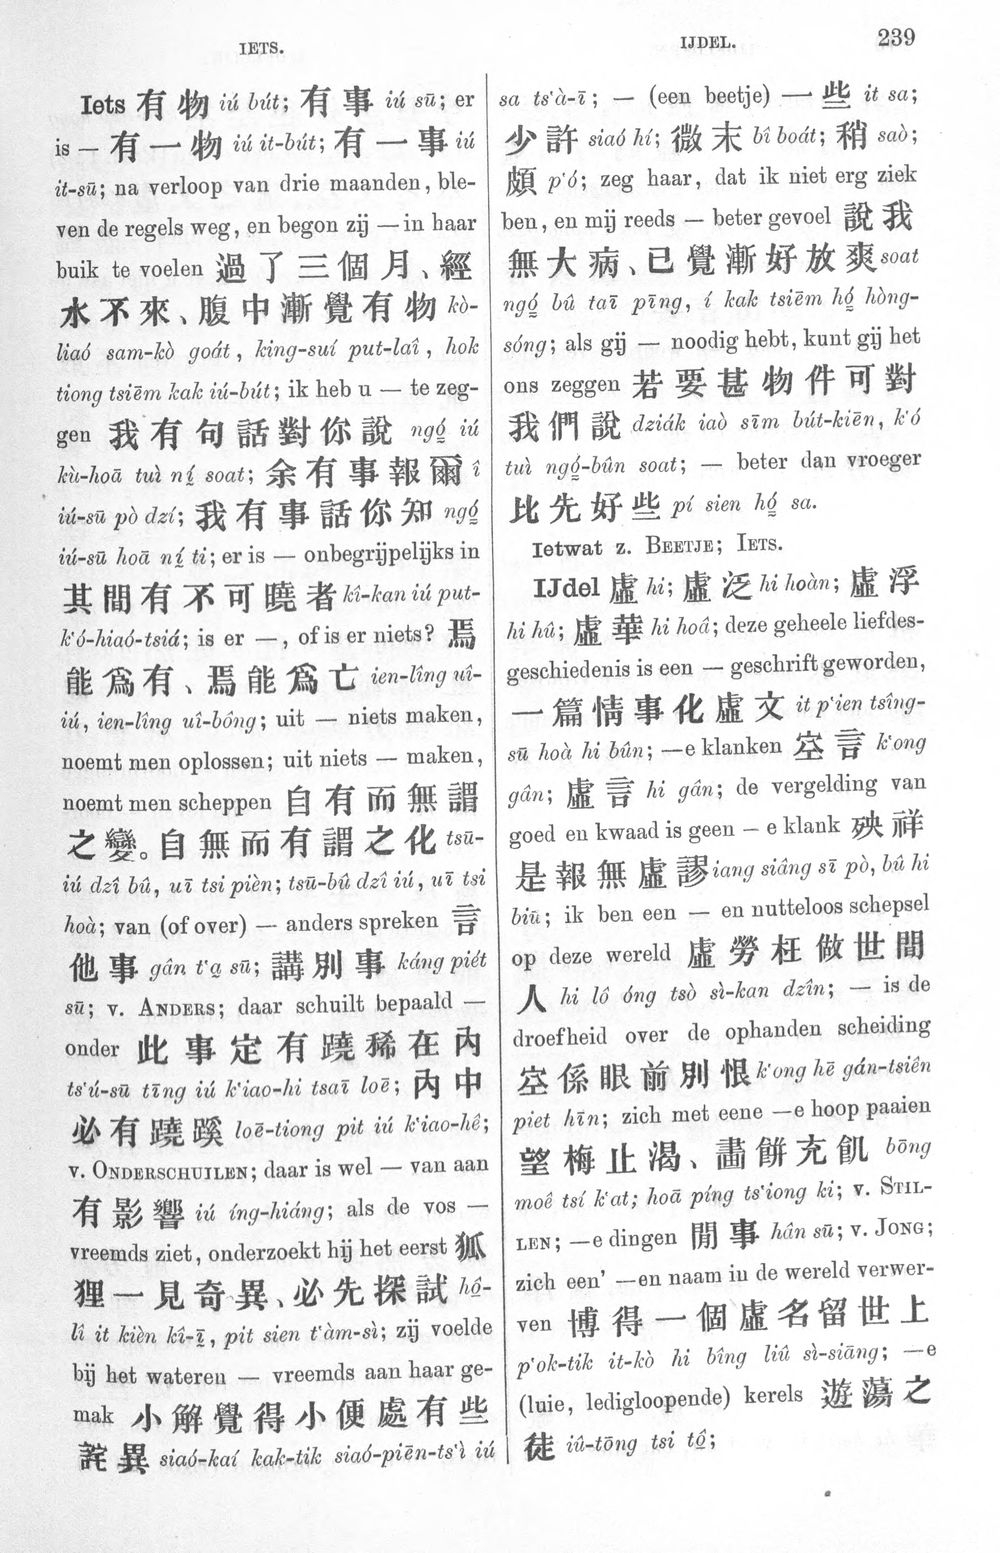 IETS.
IJDEL.
239
Iets 有物 iú bút; 有事 iú sū; er
is — 有一物 iú it-bút; 有一事 iú
it-sū; na verloop van drie maanden, ble-
ven de regels weg, en begon zij — in haar
buik te voelen 過了三個月、經
水不來、腹中漸覺有物 kò-
liaó sam-kò goát, king-suí put-laî, hok
tiong tsiēm kak iú-bút; ik heb u — te zeg-
gen 我有句話對你說 ngó̤ iú
kù-hoā tuì ní̤ soat; 余有事報爾 î
iú-sū pò dzí; 我有事話你知 ngó̤
iú-sū hoā ní̤ ti; er is — onbegrijpelijks in
其間有不可曉者 kî-kan iú put-
k‘ó-hiaó-tsiá; is er —, of is er niets? 焉
能爲有、焉能爲亡 ien-lîng uî-
iú, ien-lîng uî-bông; uit — niets maken,
noemt men oplossen; uit niets — maken,
noemt men scheppen 自有而無謂
之變。自無而有謂之化 tsū-
iú dzî bû, uī tsi pièn; tsū-bû dzî iú, uī tsi
hoà; van (of over) — anders spreken 言
他事 gân t‘a̤ sū; 講別事 káng piét
sū; v. ANDERS; daar schuilt bepaald —
onder 此事定有蹺稀在內
ts‘ú-sū tīng iú k‘iao-hi tsaī loē; 內中
必有蹺蹊 loē-tiong pit iú k‘iao-hê;
v. ONDERSCHUILEN; daar is wel — van aan
有影響 iú íng-hiáng; als de vos —
vreemds ziet, onderzoekt hij het eerst 狐
狸一見奇異、必先探試 hô̤-
lî it kièn kî-ī̤, pit sien t‘àm-sì; zij voelde
bij het wateren — vreemds aan haar ge-
mak 小解覺得小便處有些
詫異 siaó-kaí kak-tik siaó-piēn-ts‘ì iú
sa ts‘à-ī; — (een beetje) — 一些 it sa;
少許 siaó hí; 微末 bî boát; 稍 saò;
頗 p‘ó; zeg haar, dat ik niet erg ziek
ben, en mij reeds — beter gevoel 說我
無大病、已覺漸好放爽 soat
ngó̤ bû taī pīng, í kak tsiēm hó̤ hòng-
sóng; als gij — noodig hebt, kunt gij het
ons zeggen 若要甚物件可對
我們說 dziák iaò sīm bút-kiēn, k‘ó
tuì ngó̤-bûn soat; — beter dan vroeger
比先好些 pí sien hó̤ sa.
Ietwat z. BEETJE; IETS.
IJdel 虛 hi; 虛泛 hi hoàn; 虛浮
hi hû; 虛華 hi hoâ; deze geheele liefdes-
geschiedenis is een — geschrift geworden,
一篇情事化虛文 it p‘ien tsîng-
sū hoà hi bûn; —e klanken 空言 k‘ong
gân; 虛言 hi gân; de vergelding van
goed en kwaad is geen —e klank 殃祥
是報無虛謬 iang siâng sī pò, bû hi
biū; ik ben een — en nutteloos schepsel
op deze wereld 虛勞枉做世間
人 hi lô óng tsò sì-kan dzîn; — is de
droefheid over de ophanden scheiding
空係眼前別恨 k‘ong hē gán-tsiên
piet hīn; zich met eene —e hoop paaien
望梅止渴、畫餅充飢 bōng
moê tsí k‘at; hoā píng ts‘iong ki; v. STIL-
LEN; —e dingen 閒事 hân sū; v. JONG;
zich een’ —en naam in de wereld verwer-
ven 博得一個虛名留世上
p‘ok-tik it-kò hi bîng liû sì-siāng; —e
(luie, ledigloopende) kerels 遊蕩之
徒 iû-tōng tsi tô̤;